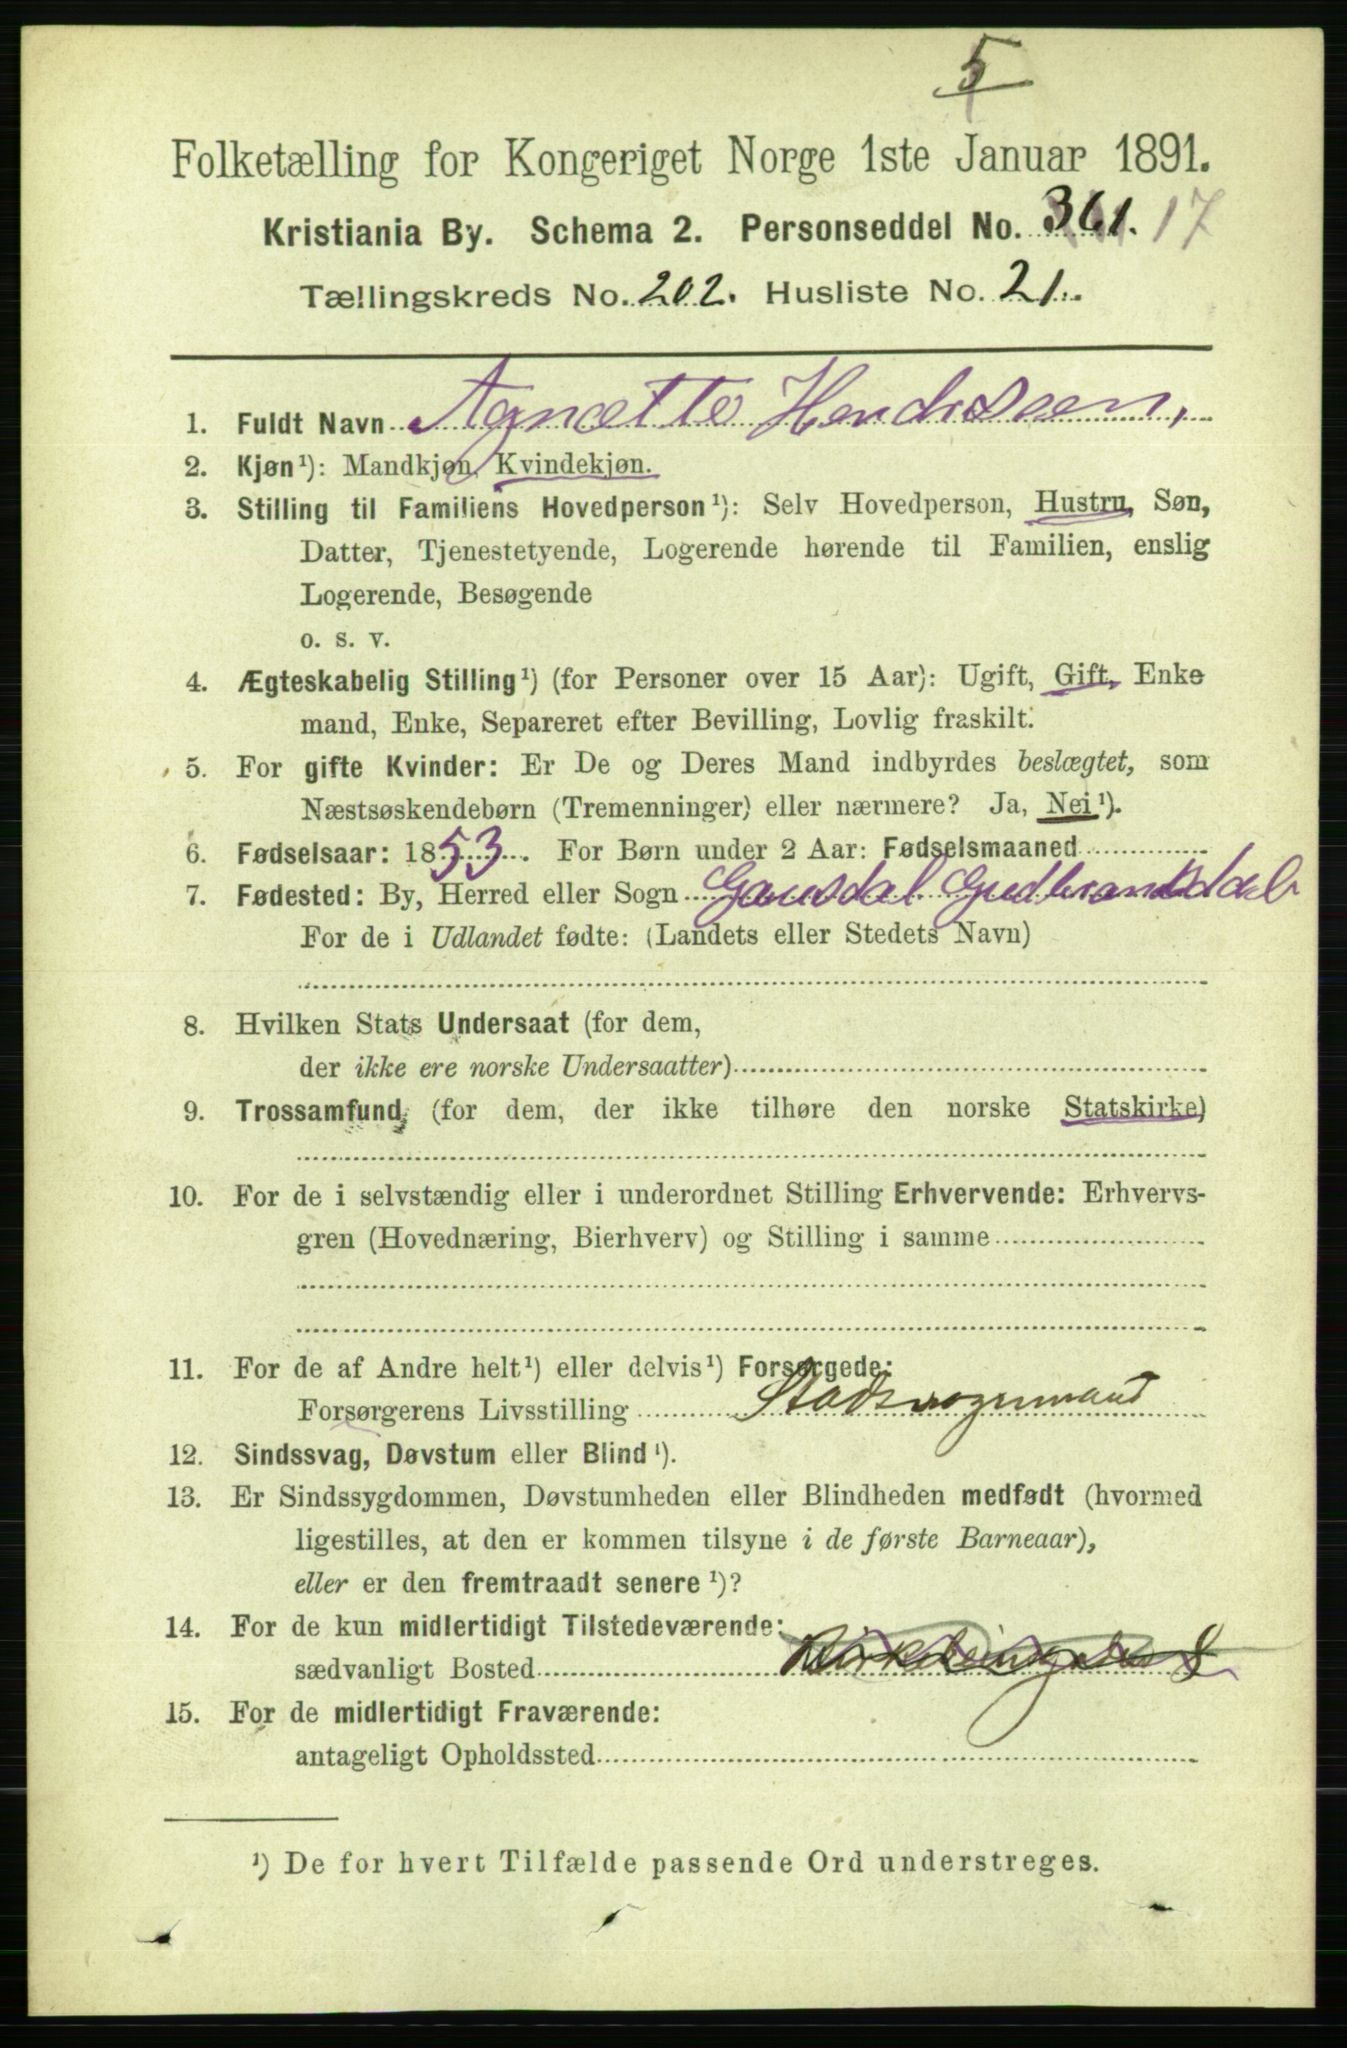 5
Folketælling for Kongeriget Norge 1ste Januar 1891.
Kristiania By. Schema 2. Personseddel No. 361. 17
Tællingskreds No. 202. Husliste No. 21.
1. Fuldt Navn Agnætte Hendissen,
2. Kjøn¹): Mandkjøn, Kvindekjøn.
3. Stilling til Familiens Hovedperson¹): Selv Hovedperson, Hustru, Søn,
Datter, Tjenestetyende, Logerende hørende til Familien, enslig
Logerende, Besøgende
o. s. v.
4. Ægteskabelig Stilling¹) (for Personer over 15 Aar): Ugift, Gift, Enke
mand, Enke, Separeret efter Bevilling, Lovlig fraskilt.
5. For gifte Kvinder: Er De og Deres Mand indbyrdes beslægtet, som
Næstsøskendebørn (Tremenninger) eller nærmere? Ja, Nei¹).
6. Fødselsaar: 1853. For Børn under 2 Aar: Fødselsmaaned
7. Fødested: By, Herred eller Sogn Gausdal Gudbrandsdal
For de i Udlandet fødte: (Landets eller Stedets Navn)
8. Hvilken Stats Undersaat (for dem,
der ikke ere norske Undersaatter)
9. Trossamfund, (for dem, der ikke tilhøre den norske Statskirke)
10. For de i selvstændig eller i underordnet Stilling Erhvervende: Erhvervs-
gren (Hovednæring, Bierhverv) og Stilling i samme
11. For de af Andre helt¹) eller delvis¹) Forsørgede:
Forsørgerens Livsstilling Stadsvognmand
12. Sindssvag, Døvstum eller Blind¹).
13. Er Sindssygdommen, Døvstumheden eller Blindheden medfødt (hvormed
ligestilles, at den er kommen tilsyne i de første Barneaar),
eller er den fremtraadt senere¹)?
14. For de kun midlertidigt Tilstedeværende:
sædvanligt Bosted 8
15. For de midlertidigt Fraværende:
antageligt Opholdssted
¹) De for hvert Tilfælde passende Ord understreges.